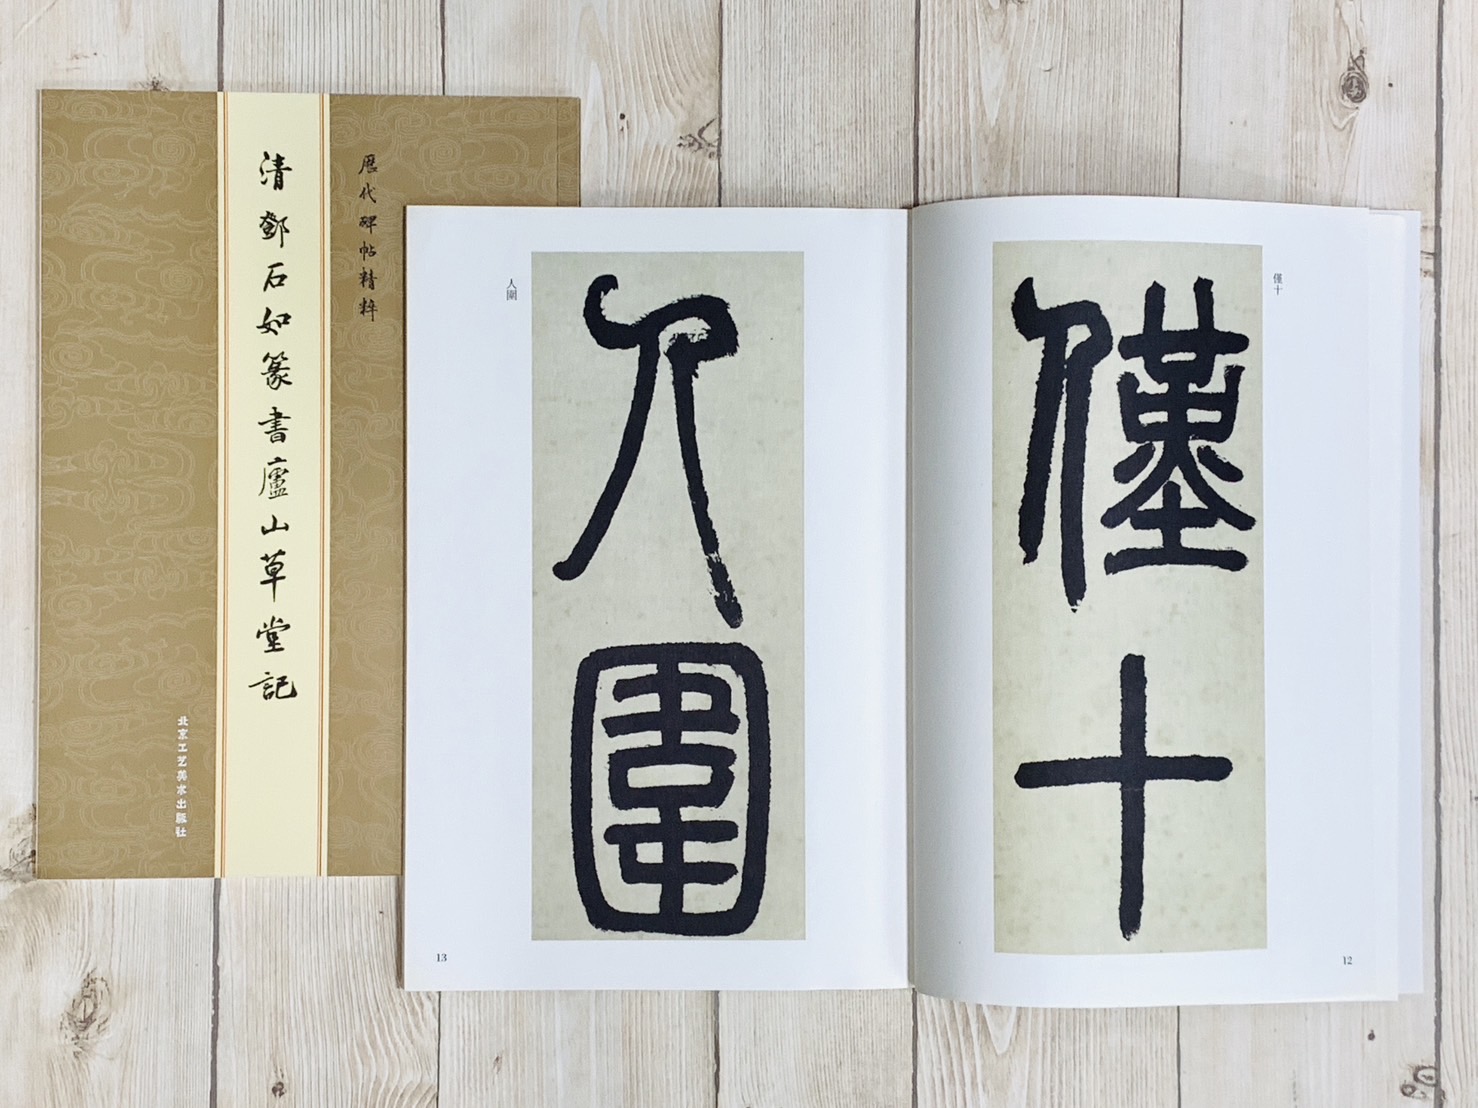 歷代碑帖精粹
清鄧石如篆書廬山草堂記
北京工艺美术出版社
僅十
僅十
12
人圍
人圍
13